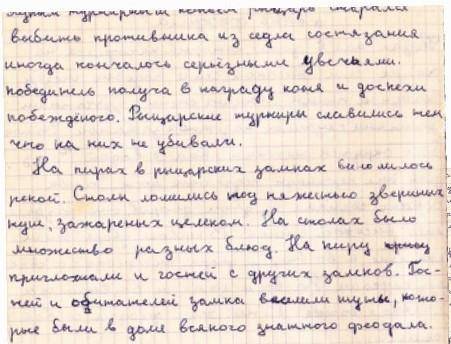 тупым турнирным копьём рыцарь старался
выбить противника из седла состязания
иногда кончалось серьёзными увечьями.
победитель получа в награду коня и доспехи
побеждёного. Рыцарские турниры славились тем,
что на них не убивали.
На пирах в рыцарских замках вино лилось
рекой. Столы ломились под тяжестью звериных
туш, зажареных целеком. На столах было
множество разных блюд. На пиру
приглохиали и гостей с других замков. Гос-
тей и обитателей замка веселили шуты, кото-
рые были в доме всякого знатного феодала.